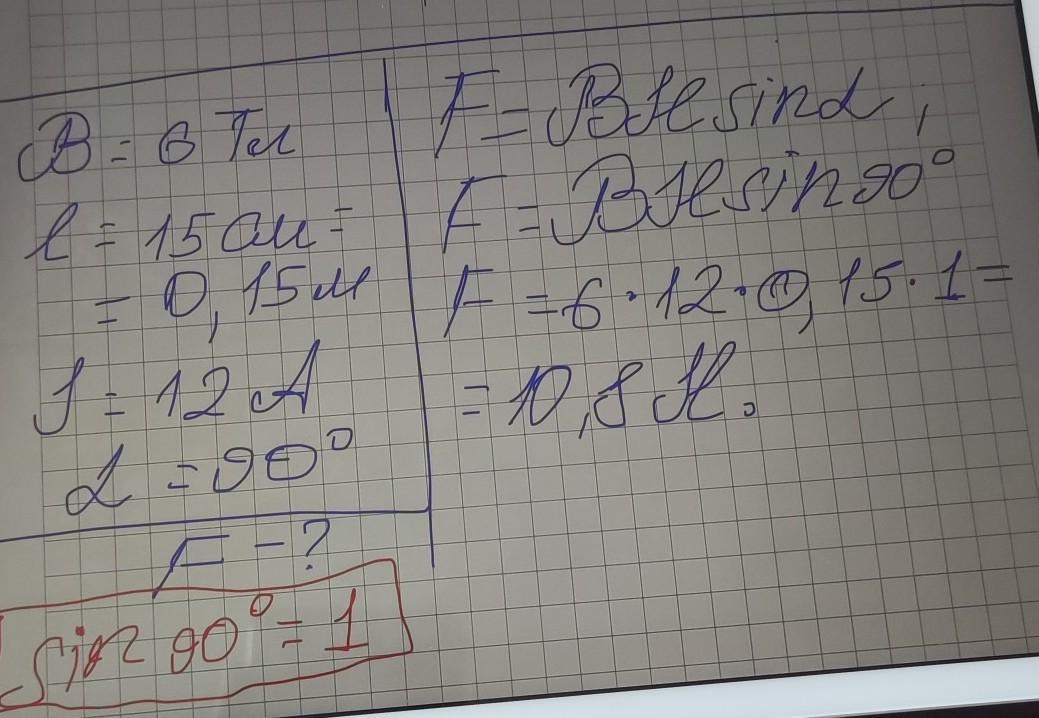 B = 6 Тл
l = 15 см =
= 0,15 м
J = 12 А
α = 90°
F - ?
sin 90° = 1
F = BJl sinα ;
F = BJl sin 90°
F = 6 · 12 · 0,15 · 1 =
= 10,8 Н.